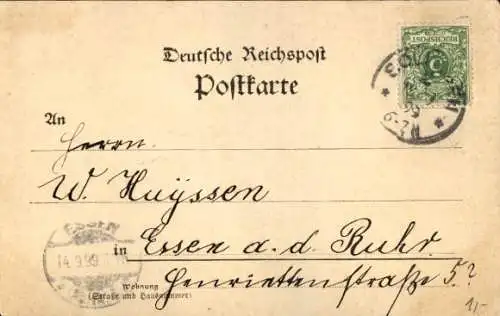 REICHSPOST
5
Deutsche Reichspost
Postkarte
An
Herrn.
W. Huÿssen
ESSEN
14.9.99
in Essen a. d. Ruhr.
Wohnung
(Straße und Hausnummer)
Henriettenstraße 5?
1,-